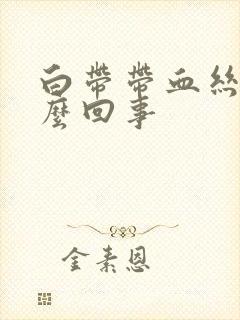 白帶帶血絲
麼回事
金素恩